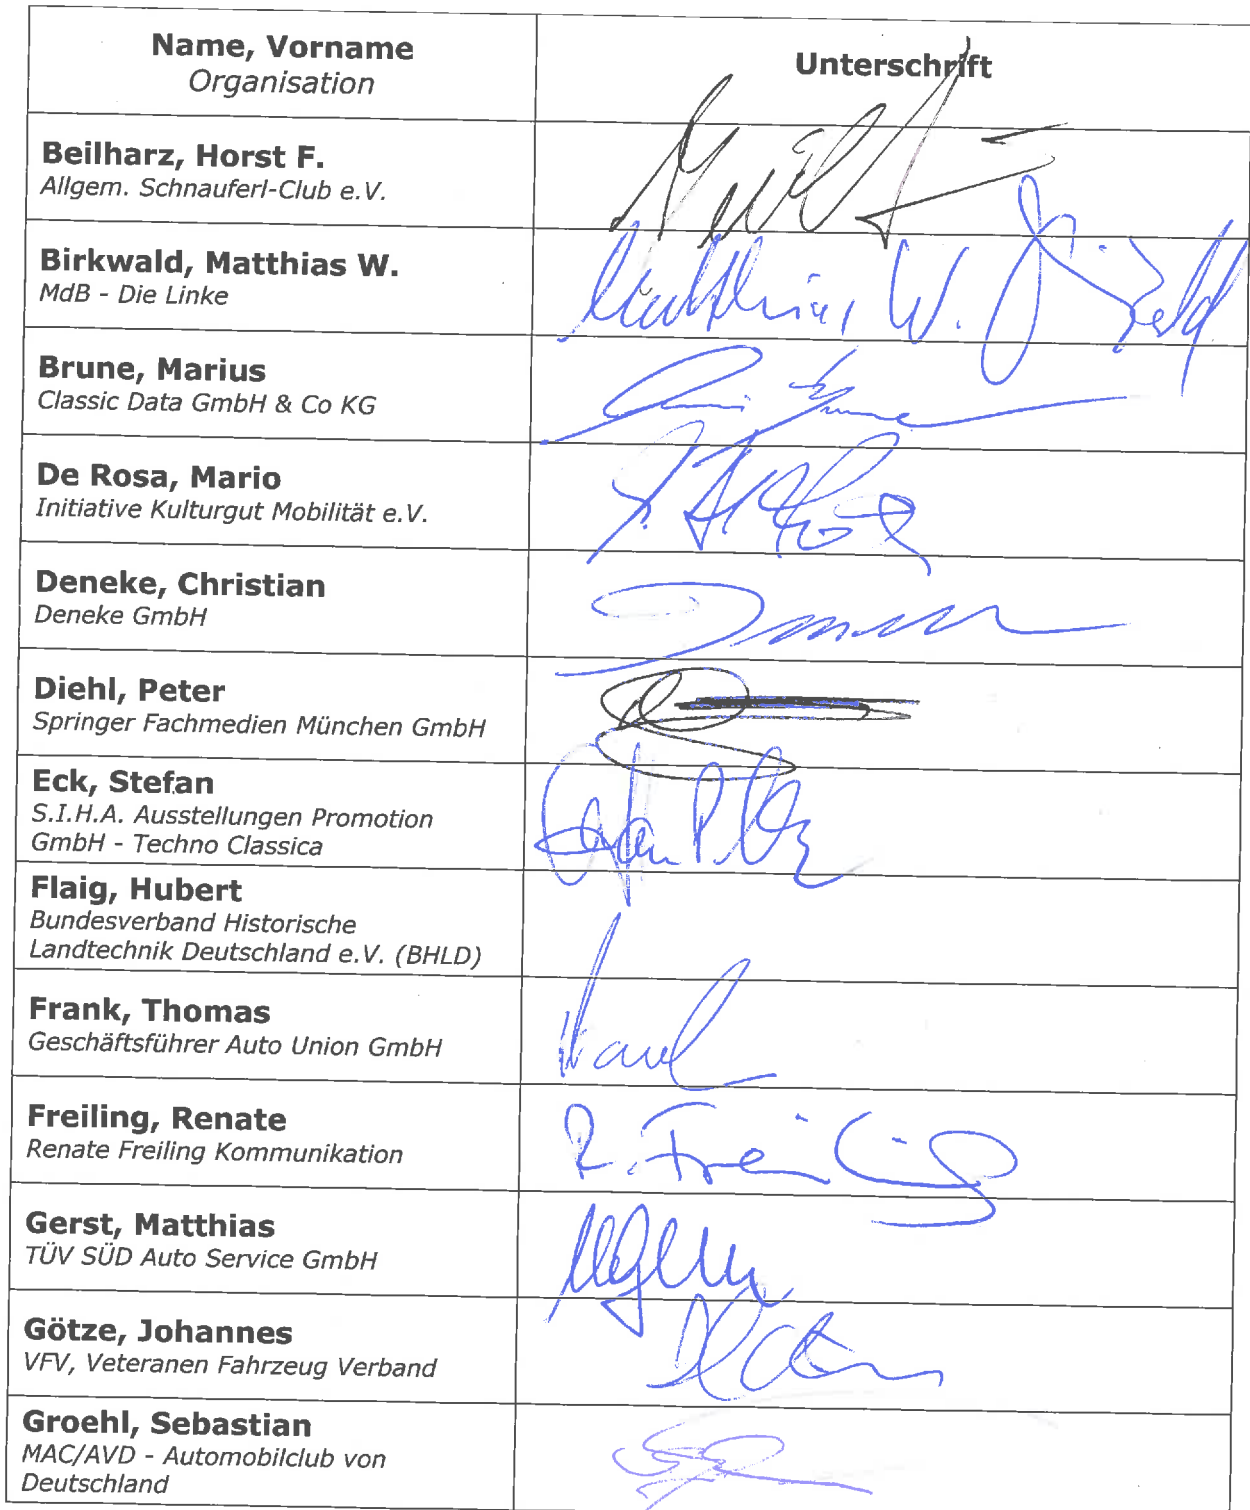 Name, Vorname
Organisation
Unterschrift
Beilharz, Horst F.
Allgem. Schnauferl-Club e.V.
Birkwald, Matthias W.
MdB - Die Linke
Matthias W. Birkwald
Brune, Marius
Classic Data GmbH & Co KG
De Rosa, Mario
Initiative Kulturgut Mobilität e.V.
Deneke, Christian
Deneke GmbH
Diehl, Peter
Springer Fachmedien München GmbH
Eck, Stefan
S.I.H.A. Ausstellungen Promotion
GmbH - Techno Classica
Flaig, Hubert
Bundesverband Historische
Landtechnik Deutschland e.V. (BHLD)
Frank, Thomas
Geschäftsführer Auto Union GmbH
Freiling, Renate
Renate Freiling Kommunikation
R. Freiling
Gerst, Matthias
TÜV SÜD Auto Service GmbH
Götze, Johannes
VFV, Veteranen Fahrzeug Verband
Groehl, Sebastian
MAC/AVD - Automobilclub von
Deutschland